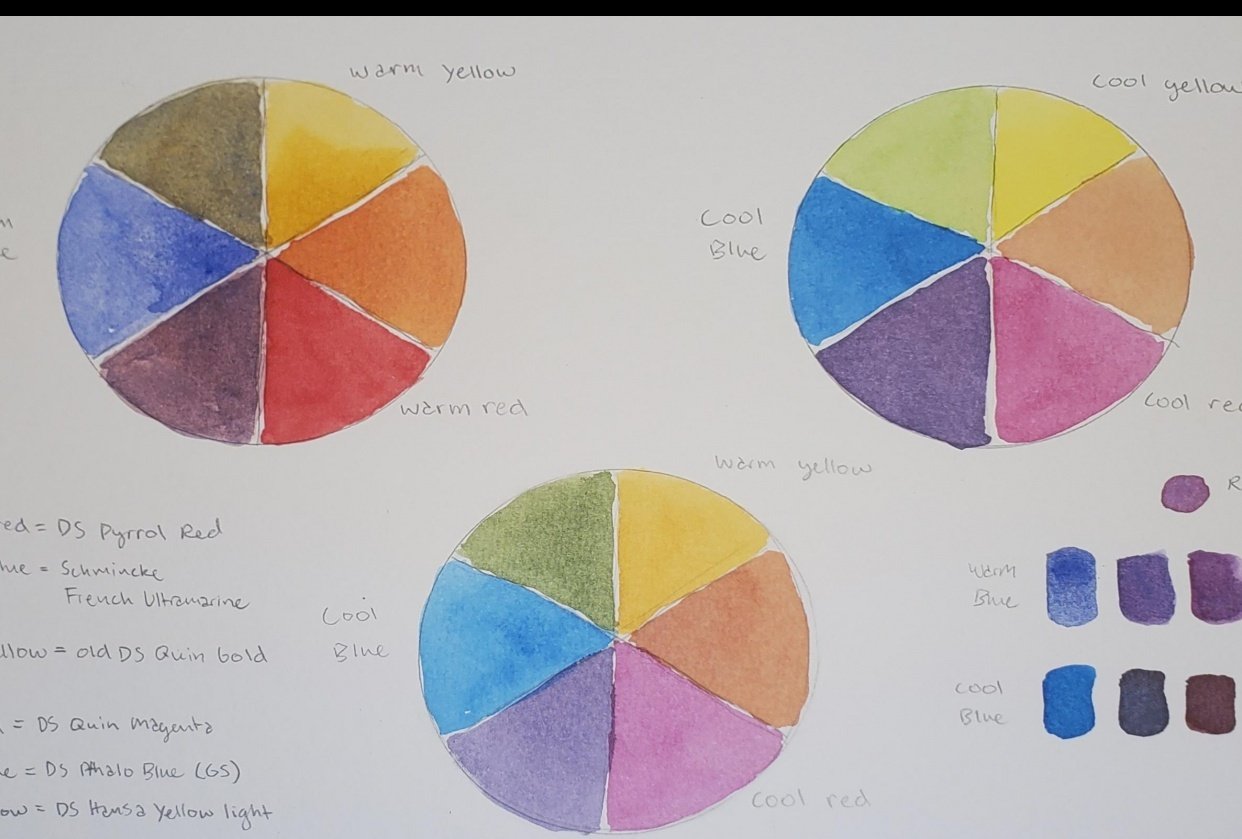 warm yellow
warm red
Cool yellow
Cool
Blue
Cool red
warm yellow
Cool
Blue
Cool red
red = DS Pyrrol Red
lue = Schmincke
French Ultramarine
llow = old DS Quin Gold
= DS Quin Magenta
e = DS Phthalo Blue (GS)
ow = DS Hansa Yellow light
R
Warm
Blue
Cool
Blue